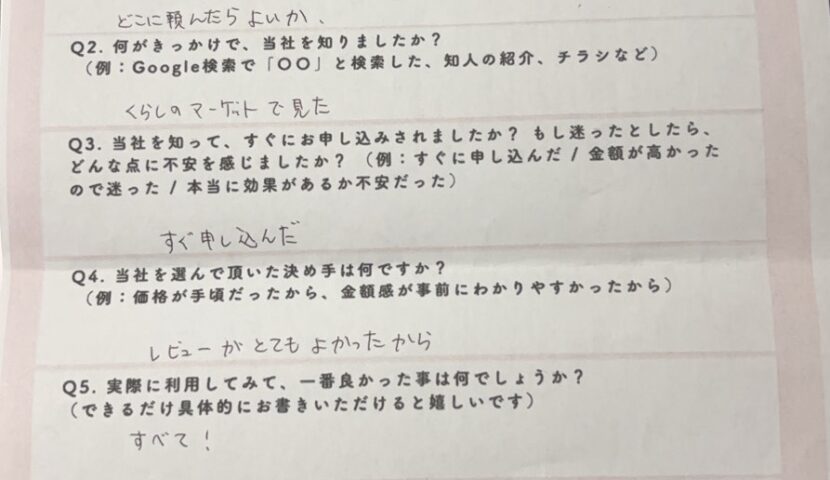 どこに頼んだらよいか、
Q2. 何がきっかけで、当社を知りましたか？
（例：Google検索で「〇〇」と検索した、知人の紹介、チラシなど）
くらしのマーケットで見た
Q3. 当社を知って、すぐにお申し込みされましたか？ もし迷ったとしたら、
どんな点に不安を感じましたか？（例：すぐに申し込んだ / 金額が高かった
ので迷った / 本当に効果があるか不安だった）
すぐ申し込んだ
Q4. 当社を選んで頂いた決め手は何ですか？
（例：価格が手頃だったから、金額感が事前にわかりやすかったから）
レビューがとてもよかったから
Q5. 実際に利用してみて、一番良かった事は何でしょうか？
（できるだけ具体的にお書きいただけると嬉しいです）
すべて！